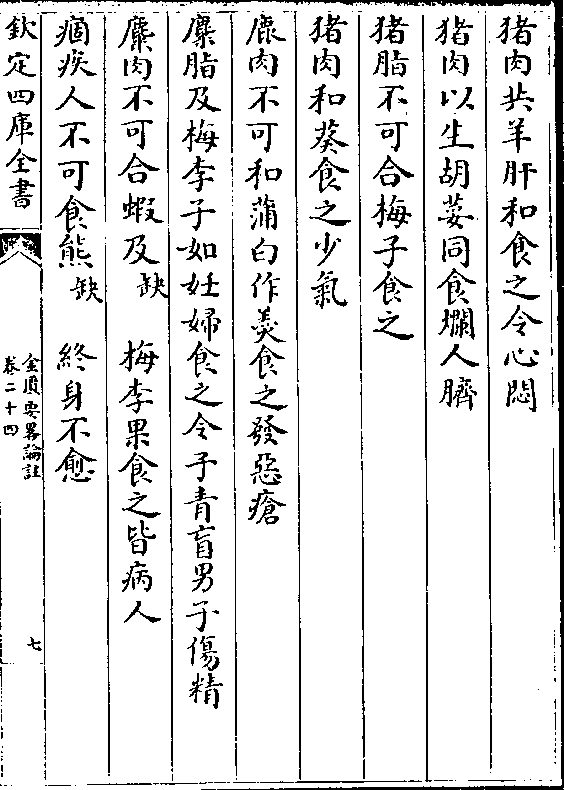 猪肉共羊肝和食之令心悶
猪肉以生胡荽同食爛人臍
猪脂不可合梅子食之
猪肉和葵食之少氣
鹿肉不可和蒲白作羮食之發惡瘡
麋脂及梅李子如妊婦食之令子青盲男子傷精
麋肉不可合蝦及缺 梅李果食之皆病人
痼疾人不可食熊缺 終身不愈
欽定四庫全書
金匱要畧論註
卷二十四
七